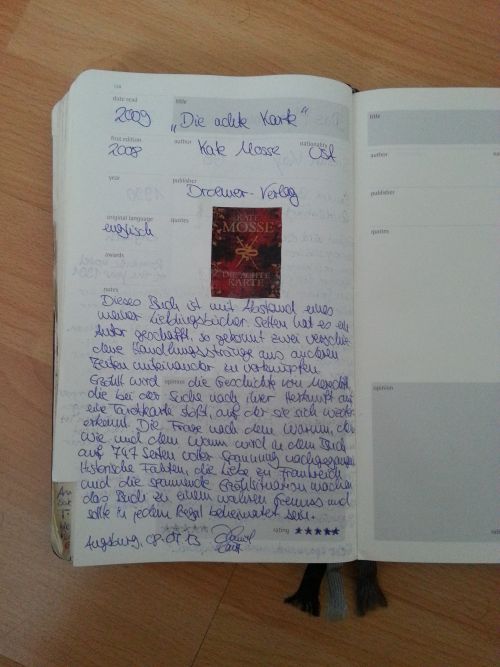 date read
title
2009
„Die achte Karte“
first edition
author
nationality
2008
Kate Mosse
year
publisher
Droemer-Verlag
original language
quotes
englisch
KATE
MOSSE
DIE ACHTE
KARTE
awards
notes
Dieses Buch ist mit Abstand eines
meiner Lieblingsbücher. Selten hat es ein
Autor geschafft, so gekonnt zwei verschie-
dene Handlungsstränge aus anderen
Zeiten miteinander zu verknüpfen.
opinion
Erzählt wird die Geschichte von Meredith,
die bei der Suche nach ihrer Herkunft auf
eine Tarotkarte stößt, auf der sie sich wieder
erkennt. Die Frage nach dem Warum, dem
wie und dem Wann wird in dem Buch
auf 747 Seiten voller Spannung nachgegangen.
Historische Fakten, die Liebe zu Frankreich
und die spannende Erzählsituation machen
das Buch zu einem wahren Genuss und
sollte in jedem Regal beheimatet sein.
rating
Augsburg, 08.07.13
title
author
publisher
quotes
opinion